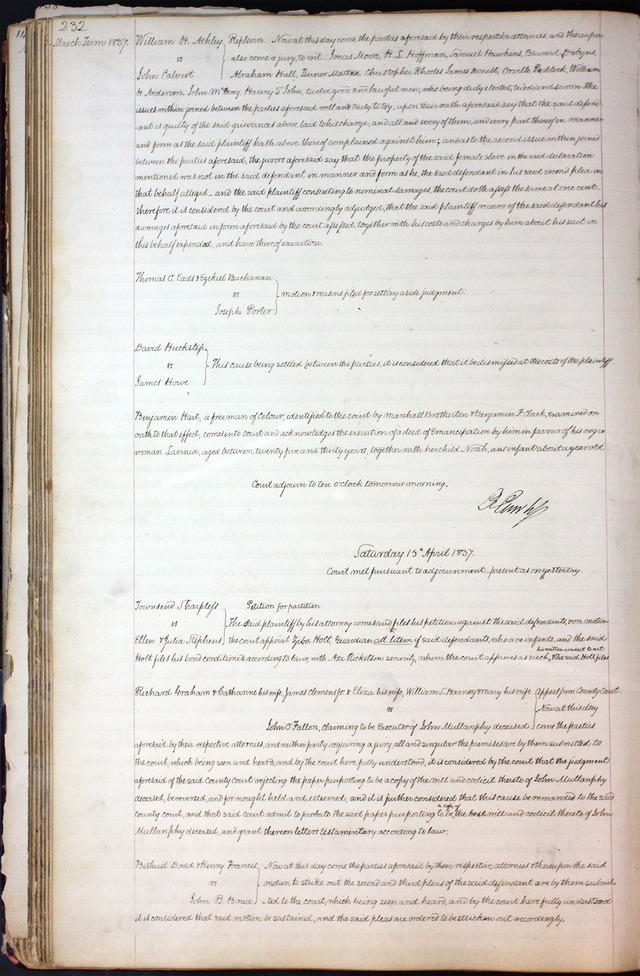 232
March Term 1837.
William H. Ashley
vs
John Calvert
Replevin. Now at this day come the parties aforesaid by their respective attornies, and thereupon
also come a jury, to wit: Jonas Moore, H. L. Hoffman, Samuel Hawkins, Edward
Abraham Hull, Turner Mattox, Christopher Rhodes, James Donell, Orville Paddock, William
H. Anderson, John McEvoy, Harvey St John, twelve good and lawful men, who being duly elected, tried and sworn the
issues within joined between the parties aforesaid well and truly to try, upon their oath aforesaid say that the said defend-
ant is guilty of the said grievances above laid to his charge, and all and every of them, and every part thereof in manner
and form as the said plaintiff hath above thereof complained against him; and as to the second issue within joined
between the parties aforesaid, the jurors aforesaid say that the property of the said female slave in the said declaration
mentioned was not in the said defendant in manner and form as he, the said defendant in his said second plea in
that behalf alleged — and the said plaintiff consenting to nominal damages, the court doth assess the same at one cent.
therefore it is considered by the court and accordingly adjudged, that the said plaintiff recover of the said defendant his
damages aforesaid in form aforesaid by the court assessed, together with his costs and charges by him about his suit in
this behalf expended, and have thereof execution.
Thomas C. Eads & Ezekiel Buchanan
vs
Joseph Porter
motion & reasons filed for setting aside judgment.
David Huckstep
vs
James Howe
This cause being settled between the parties, it is considered that it be dismissed at the costs of the plaintiff
Benjamin Hart, a free man of Colour, identified to the court by Marshall Brotherton & Benjamin F. Clark, examined on
oath to that effect, comes into court and acknowledges the execution of a deed of Emancipation by him in favour of his negro
woman Lavinia, aged between twenty five and thirty years, together with her child Noah, an infant about a year old
Court adjourn to ten o'clock tomorrow morning.
Saturday 15th April 1837.
Court met pursuant to adjournment — present as on yesterday
Townsend Sharpless
vs
Ellen & Julia Stephens
Petition for partition
The said plaintiff by his attorney comes and files his petition against the said defendants, upon motion
the court appoint Holt, Guardian ad litem of said defendants, who are infants, and the said
his written consent to act
Holt files his bond conditioned according to law, with Asa Ricketson security, whom the court approves as such, & the said Holt files
Richard Graham & Catharine his wife, James Clemens jr. & Eliza his wife, William S. Harney & Mary his wife
vs
John O'Fallon, claiming to be Executor of John Mullanphy deceased
Appeal from County Court.
Now at this day
come the parties
aforesaid by their respective attornies, and neither party requiring a jury, all and singular the premises are by them submitted to
the court, which being seen and heard, and by the court here fully understood, it is considered by the court that the judgment
aforesaid of the said County court rejecting the paper purporting to be a copy of the will and codicil thereto of John Mullanphy
deceased, be reversed, and for nought held and esteemed, and it is further considered that this cause be remanded to the said
a copy of
county court, and that said court admit to probate the said paper purporting to be the last will and codicil thereto of John
Mullanphy deceased, and grant thereon letters testamentary according to law.
Bethuel Dodd & Henry Francis
vs
John B.
Now at this day come the parties aforesaid by their respective attornies & thereupon the said
motion to strike out the second and third pleas of the said defendant are by them submit-
-ted to the court, which being seen and heard, and by the court here fully understood
it is considered that said motion be sustained, and the said pleas are ordered to be stricken out accordingly.